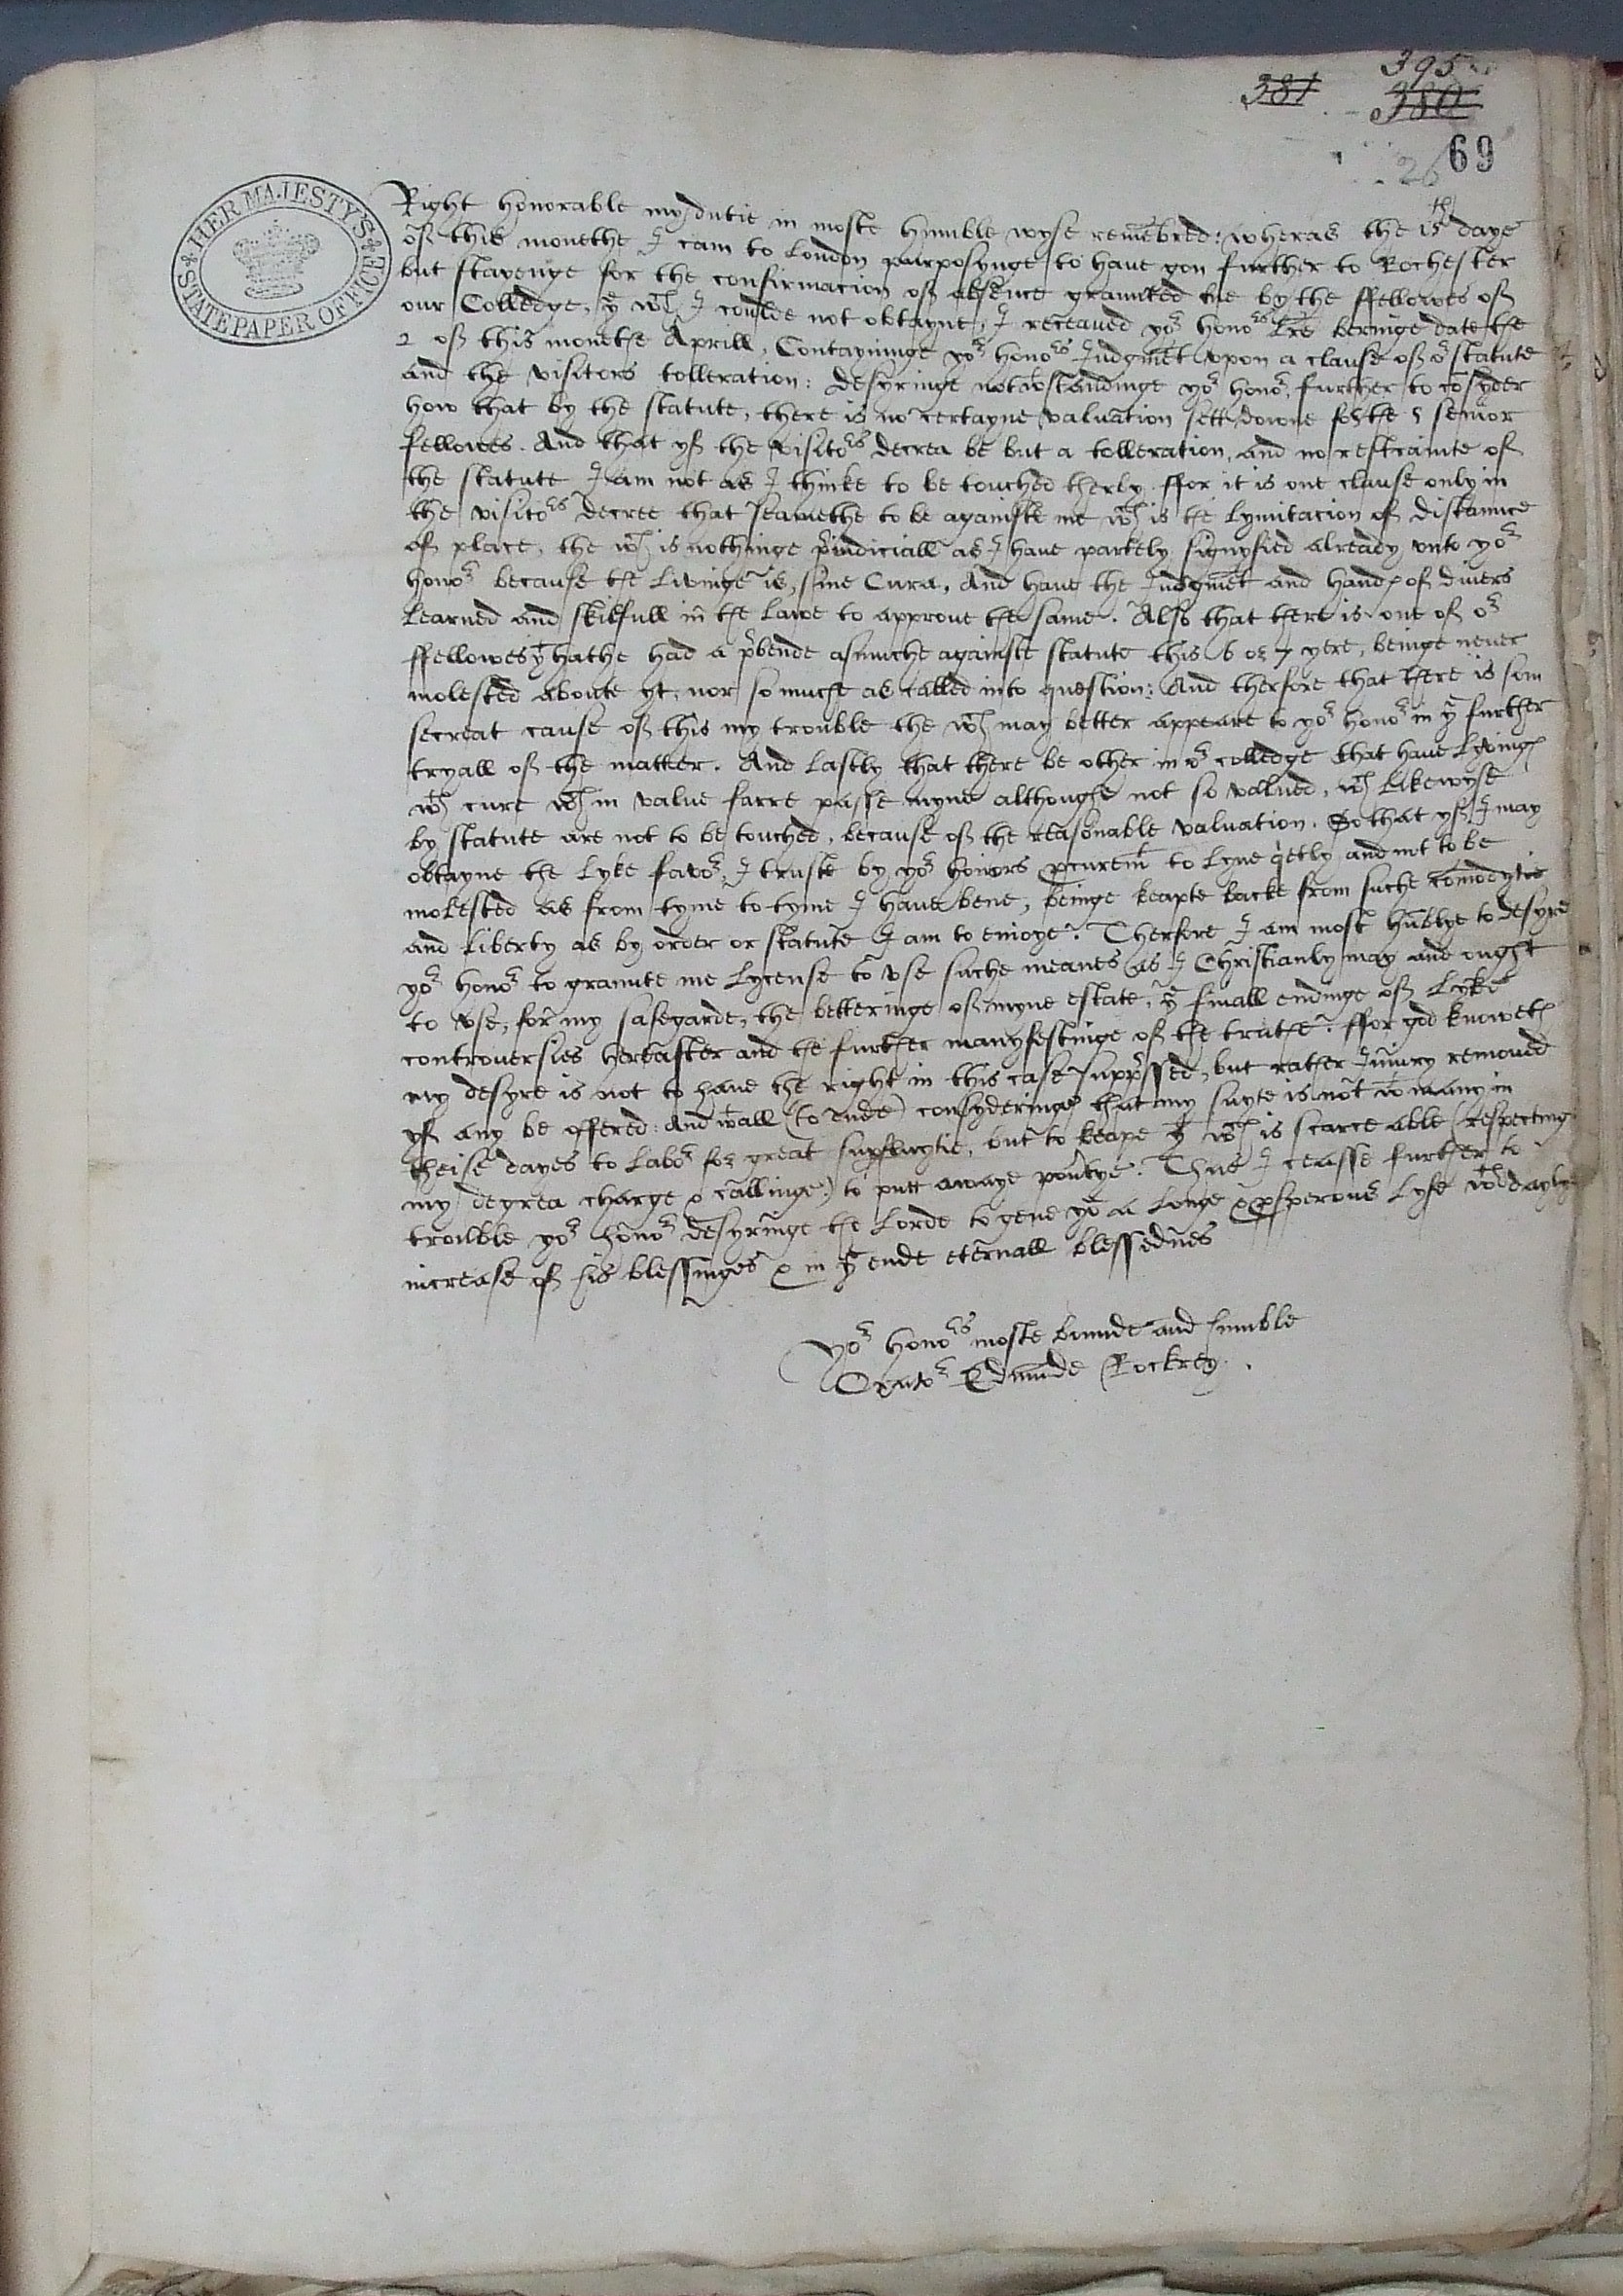 395
381 380
69
26
HER MAJESTY'S STATE PAPER OFFICE
Right honorable my dutie in moste humble wyse remēbred: wheras the 15th daye
off this monethe I cam to London purposynge to haue gon further to Rochester
but stayenge for the confirmacion off absence graunted me by the ffellowes off
our Colledge, yͤ wch I coulde not obtayne, I receaued yor honors Lre beringe date the
2 off this monethe Aprill, Contayninge yor honors Iudgmēt vpon a clause off or statute
and the visitors tolleration: desyringe notwtstandinge yor honor, further to cōsyder
how that by the statute, there is no certayne valuation sett downe for the 5 senior
fellowes. And that yf the visitors decrea be but a tolleration, and no restrainte of
the statute I am not as I thinke to be touched therby ffor it is one clause only in
the visitors decree that seamethe to be againste me wch is the Lymitacion of distaunce
of place, the wch is nothinge p̄iudiciall as I haue partely signyfied already vnto yor
honor because the Livinge is, sine Cura, And haue the Iudgmēt and handes of divers
Learned and skilfull in the Lawe to approue the same. Also that there is one of or
ffellowes yt hathe had a p̄bende asmuche againste statute this 6 or 7 yere, beinge never
molested aboute yt, nor somuche as called into question: And therfore that there is som
secreat cause off this my trouble the wch may better appeare to yor honor in yͤ further
tryall off the matter. And Lastly that there be other in or colledge that haue Lyvinges
wth cure wch in value farre passe myne althoughe not so valued, wch Likewyse
by statute are not to be touched, because off the reasonable valuation. So that yff I may
obtayne the Lyke favor, I truste by yor honors pcuremt to Lyue qietly and not to be
molested as from tyme to tyme I haue bene, beinge keapte backe from suche cōmodytie
and Liberty as by order or statute I am to enioye. Therfore I am most hūblye to desyre
yor honor to graunte me Lycense to vse suche meanes as I Christianly may and ought
to vse, for my safegarde, the betteringe off myne estate, yͤ finall endinge off Lyke
controuersies herafter and the further manyfestinge of the truthe. ffor god knoweth
my desyre is not to haue the right in this case supp̄ssed, but rather Iniury remoued
yf any be offered: And wtall (to ende) consyderinge that my suyte is not wt many in
theise dayes to Labor for great supfluytie, but to keape yt wch is scarce able (respecting
my degrea charge & callinge) to putt awaye pouertye. Thus I ceasse further to
trouble yor honor desyringe the Lorde to geue yo a Longe & psperous Lyfe wth dayly
increase of his blessinges & in yͤ ende eternall blessednes
Yor honors moste bounde and humble
Orator Edmūde Rockrey.